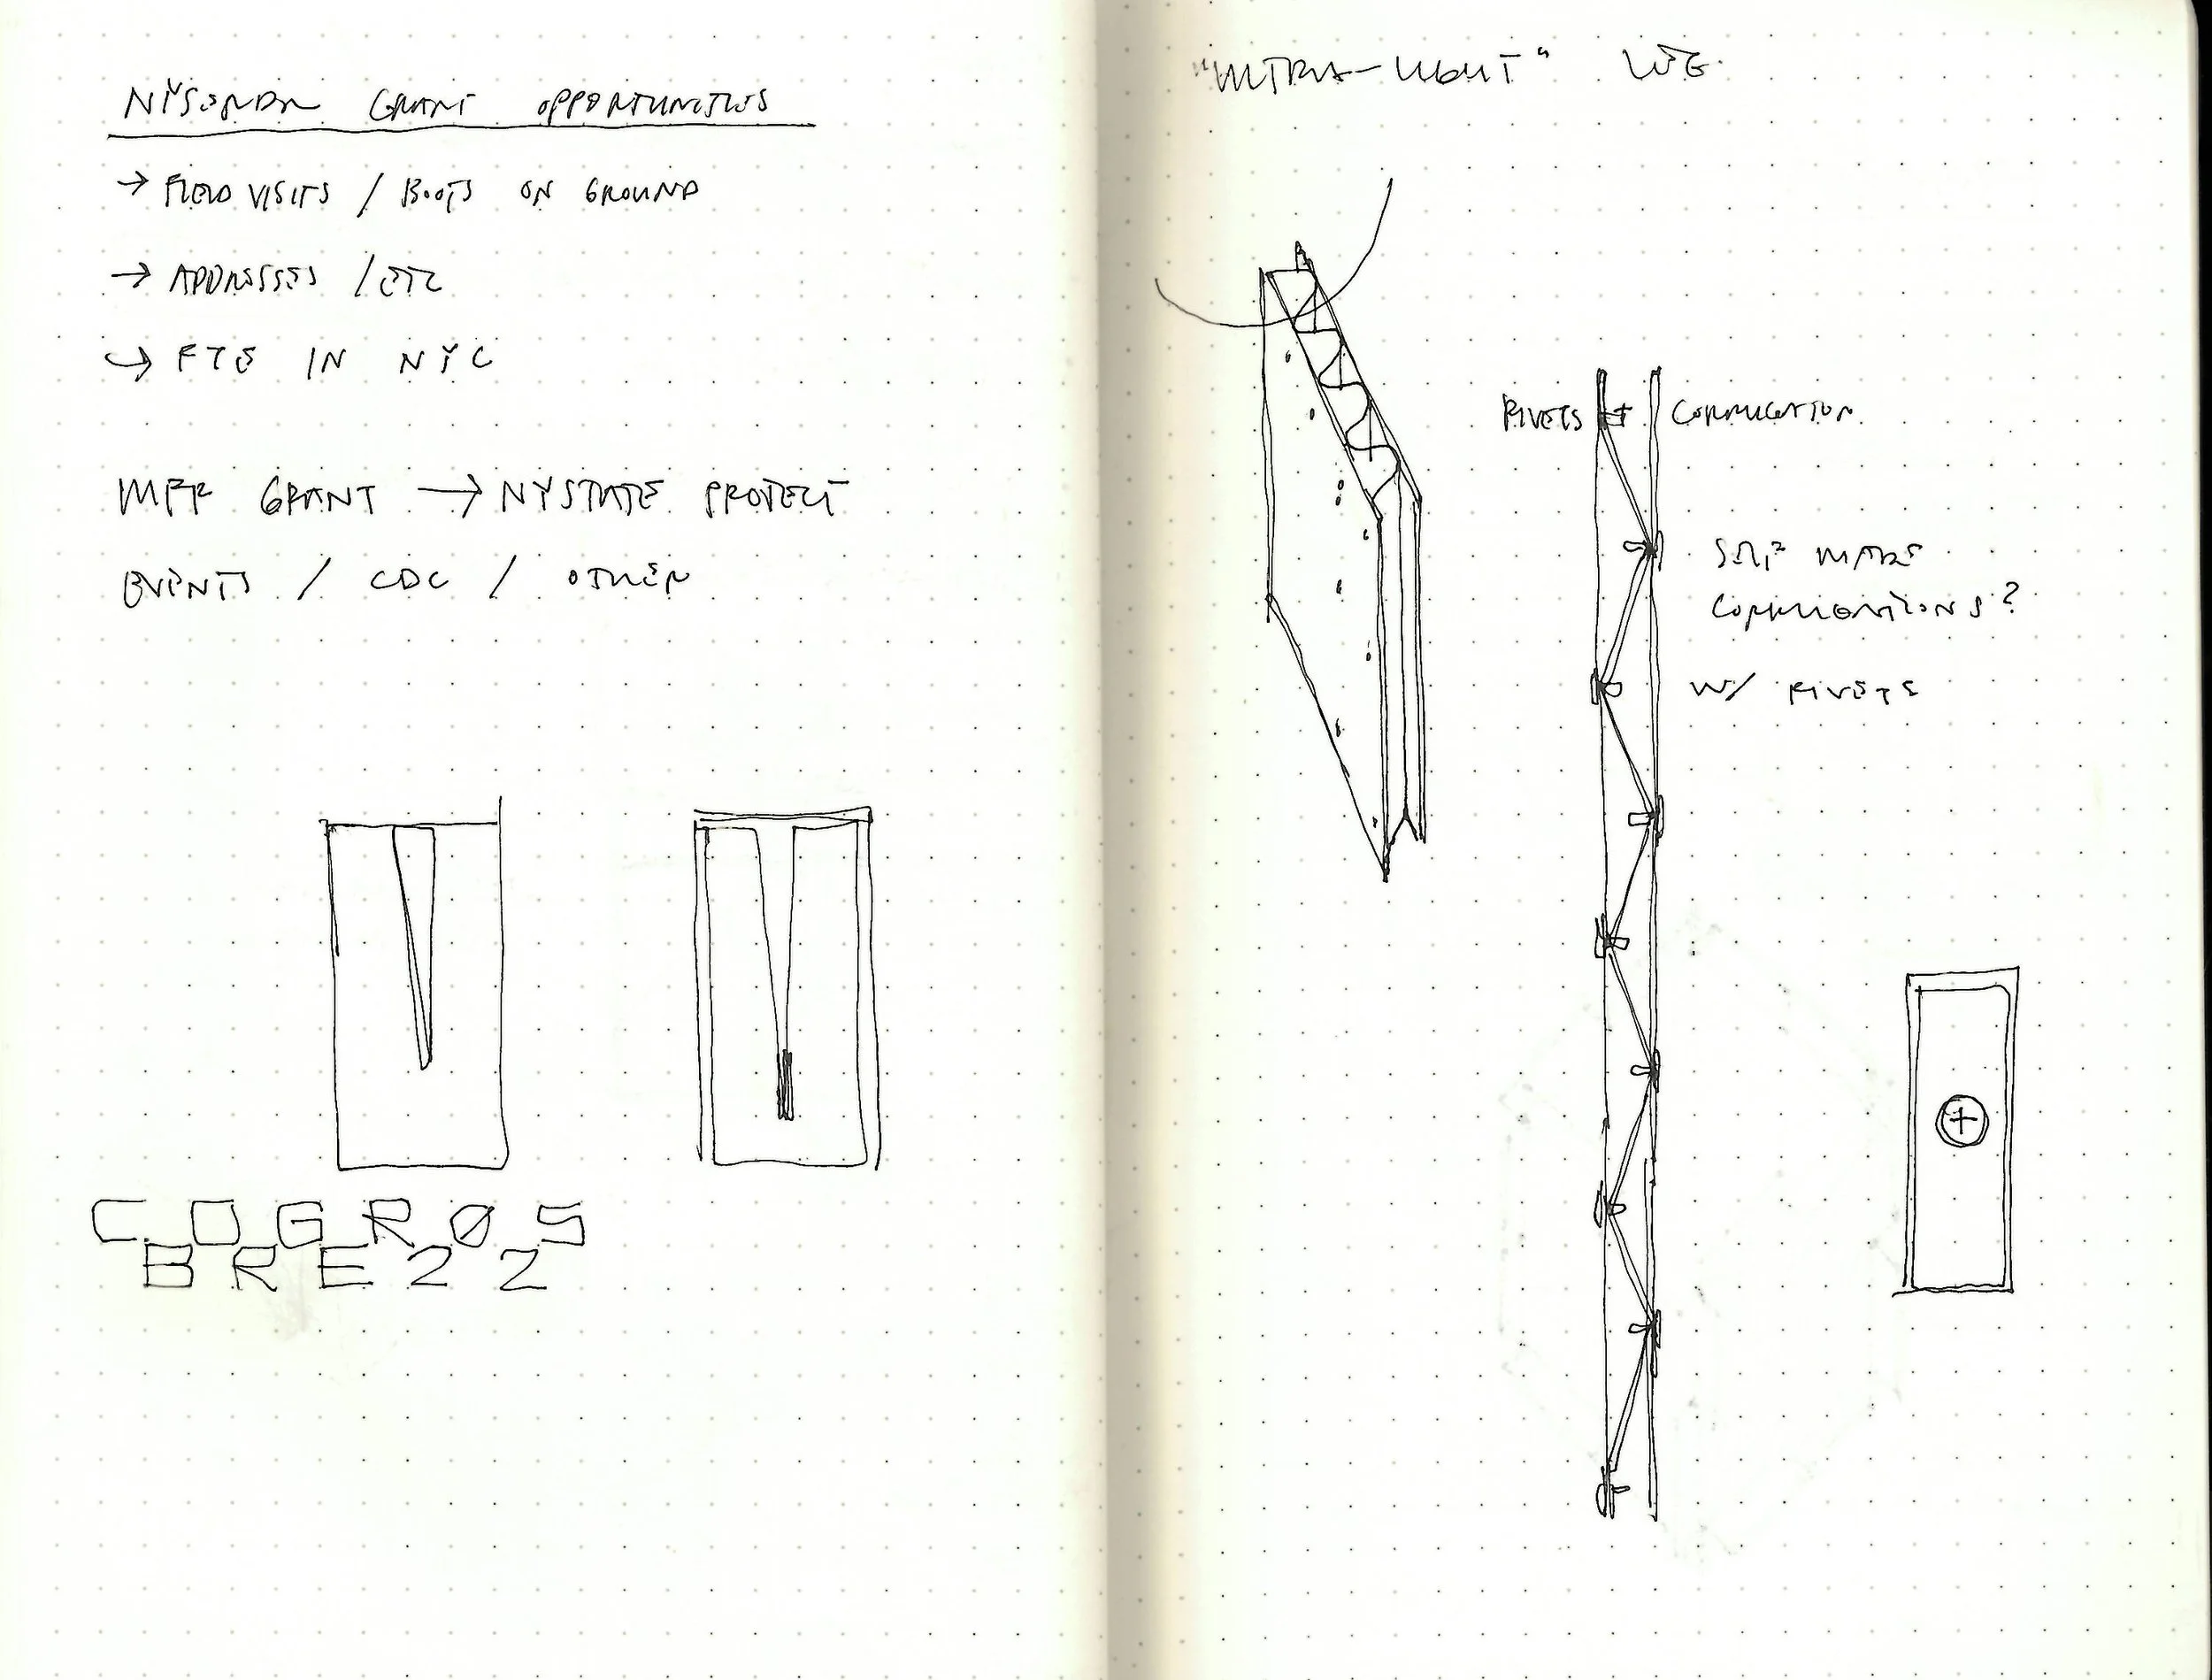 NYSERDA GRANT OPPORTUNITIES
→ FIELD VISITS / BOOTS ON GROUND
→ ADDRESSES / ETC
→ FTE IN NYC
MFF GRANT → NYSTATE PROJECT
EVENTS / CDC / OTHER
C O G R 0 S
B R E 2 2
"ULTRA-LIGHT"
RIVETS
CORRUGATION
SELF MAKE
CORRUGATIONS?
W/ RIVETS